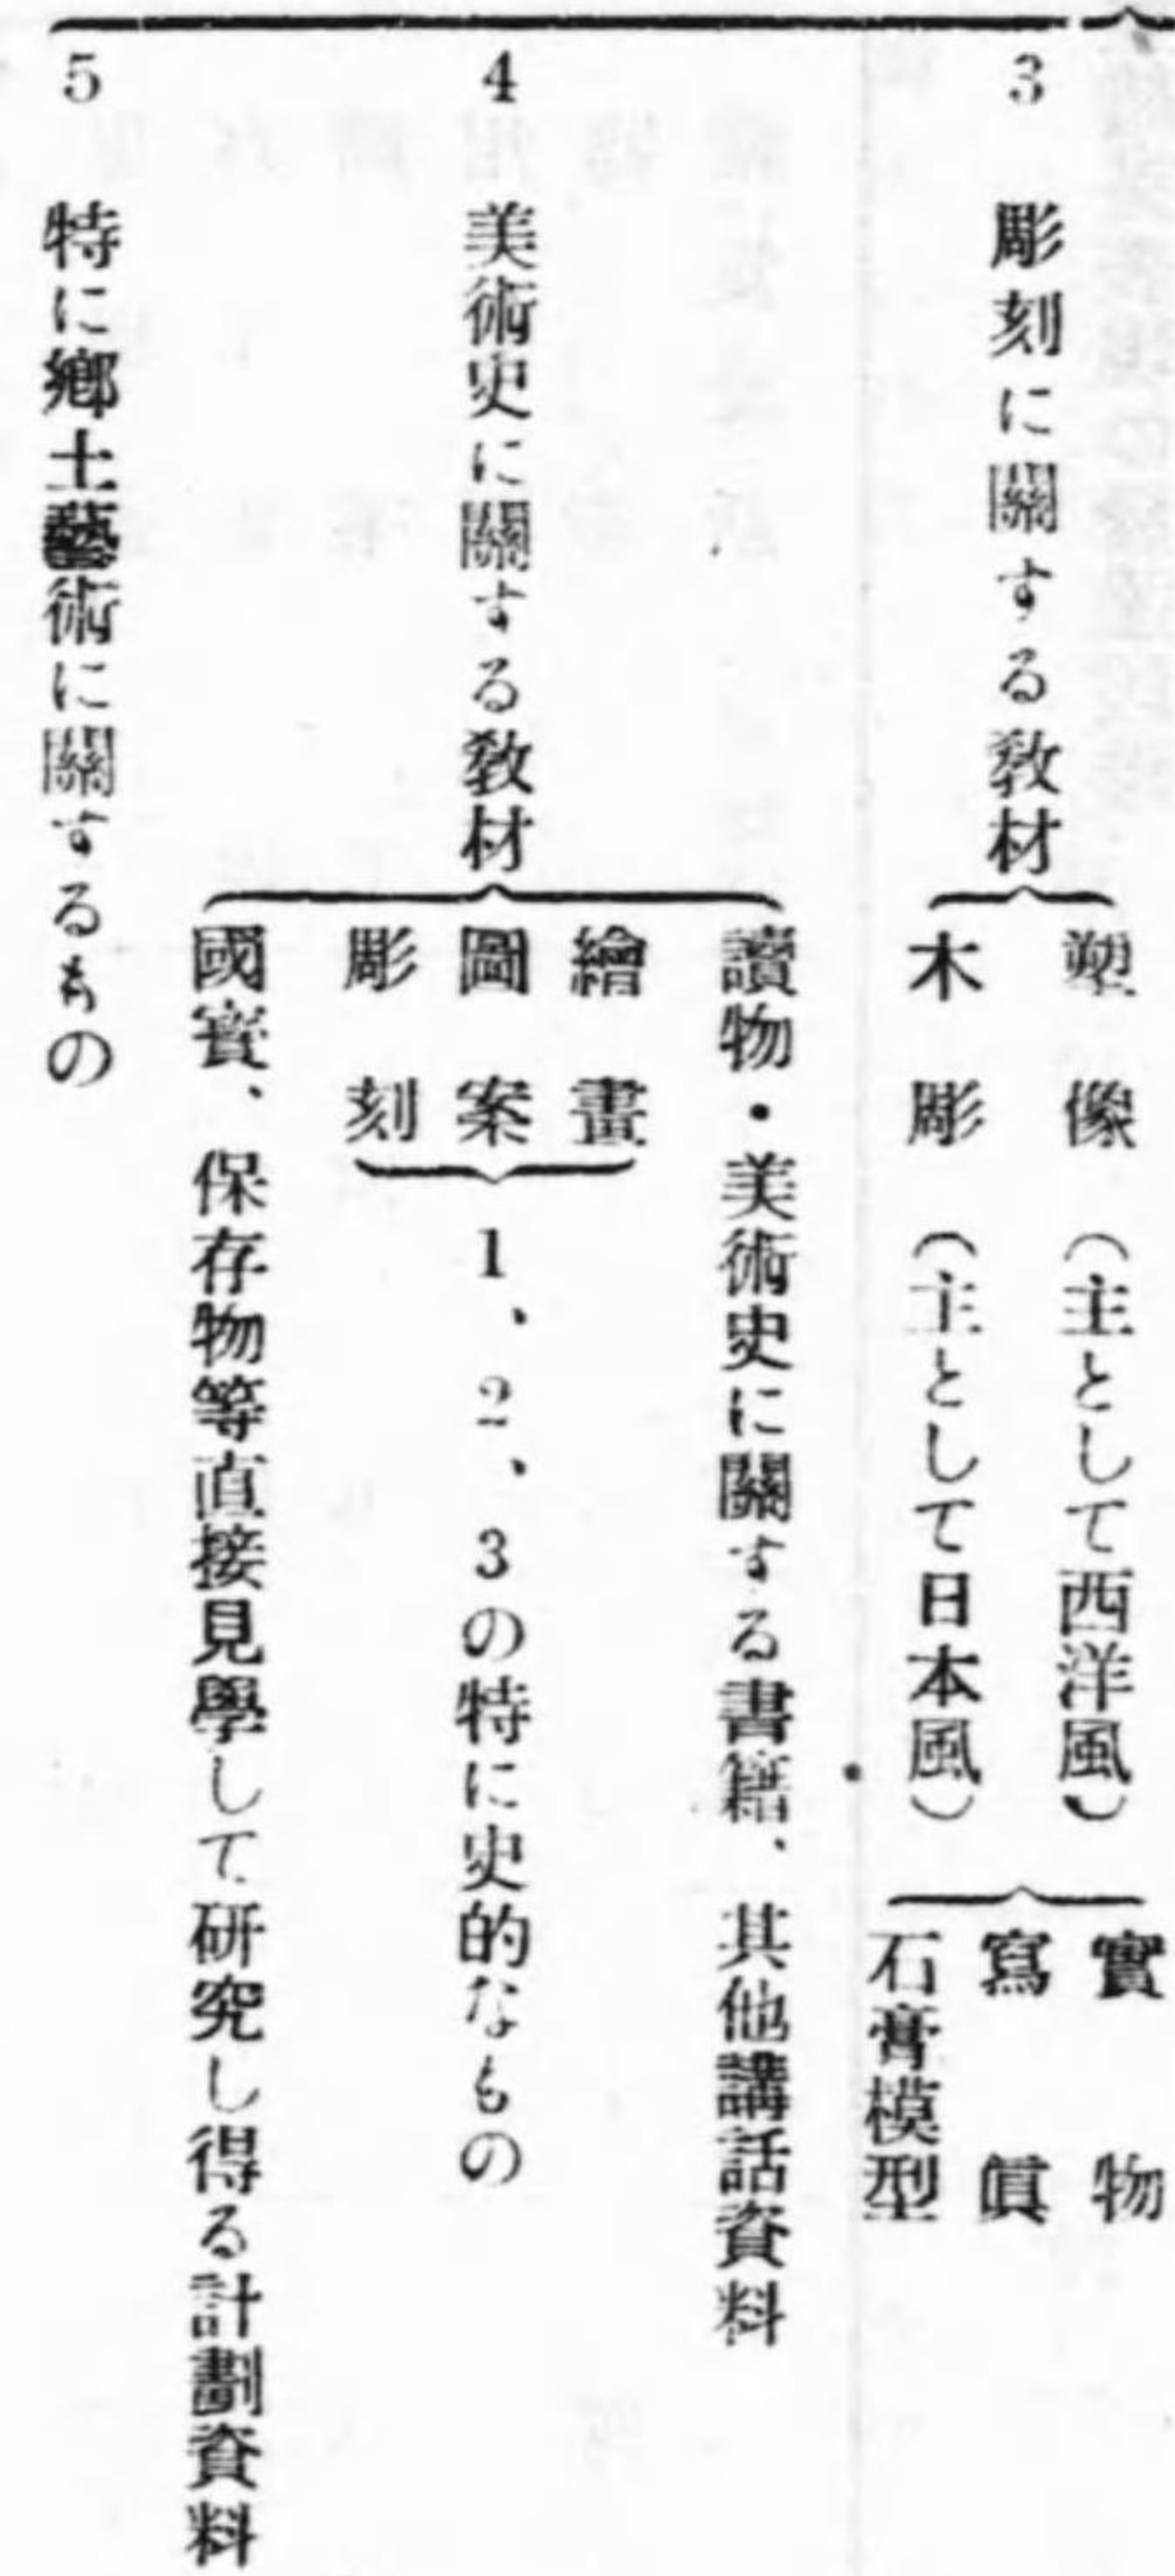 3 彫刻に關する教材
塑像（主として西洋風）
木彫（主として日本風）
實物
寫眞
石膏模型
4 美術史に關する教材
讀物・美術史に關する書籍、其他講話資料
繪畫
圖案
彫刻
1、2、3の特に史的なもの
國寶、保存物等直接見學して研究し得る計劃資料
5 特に鄕土藝術に關するもの